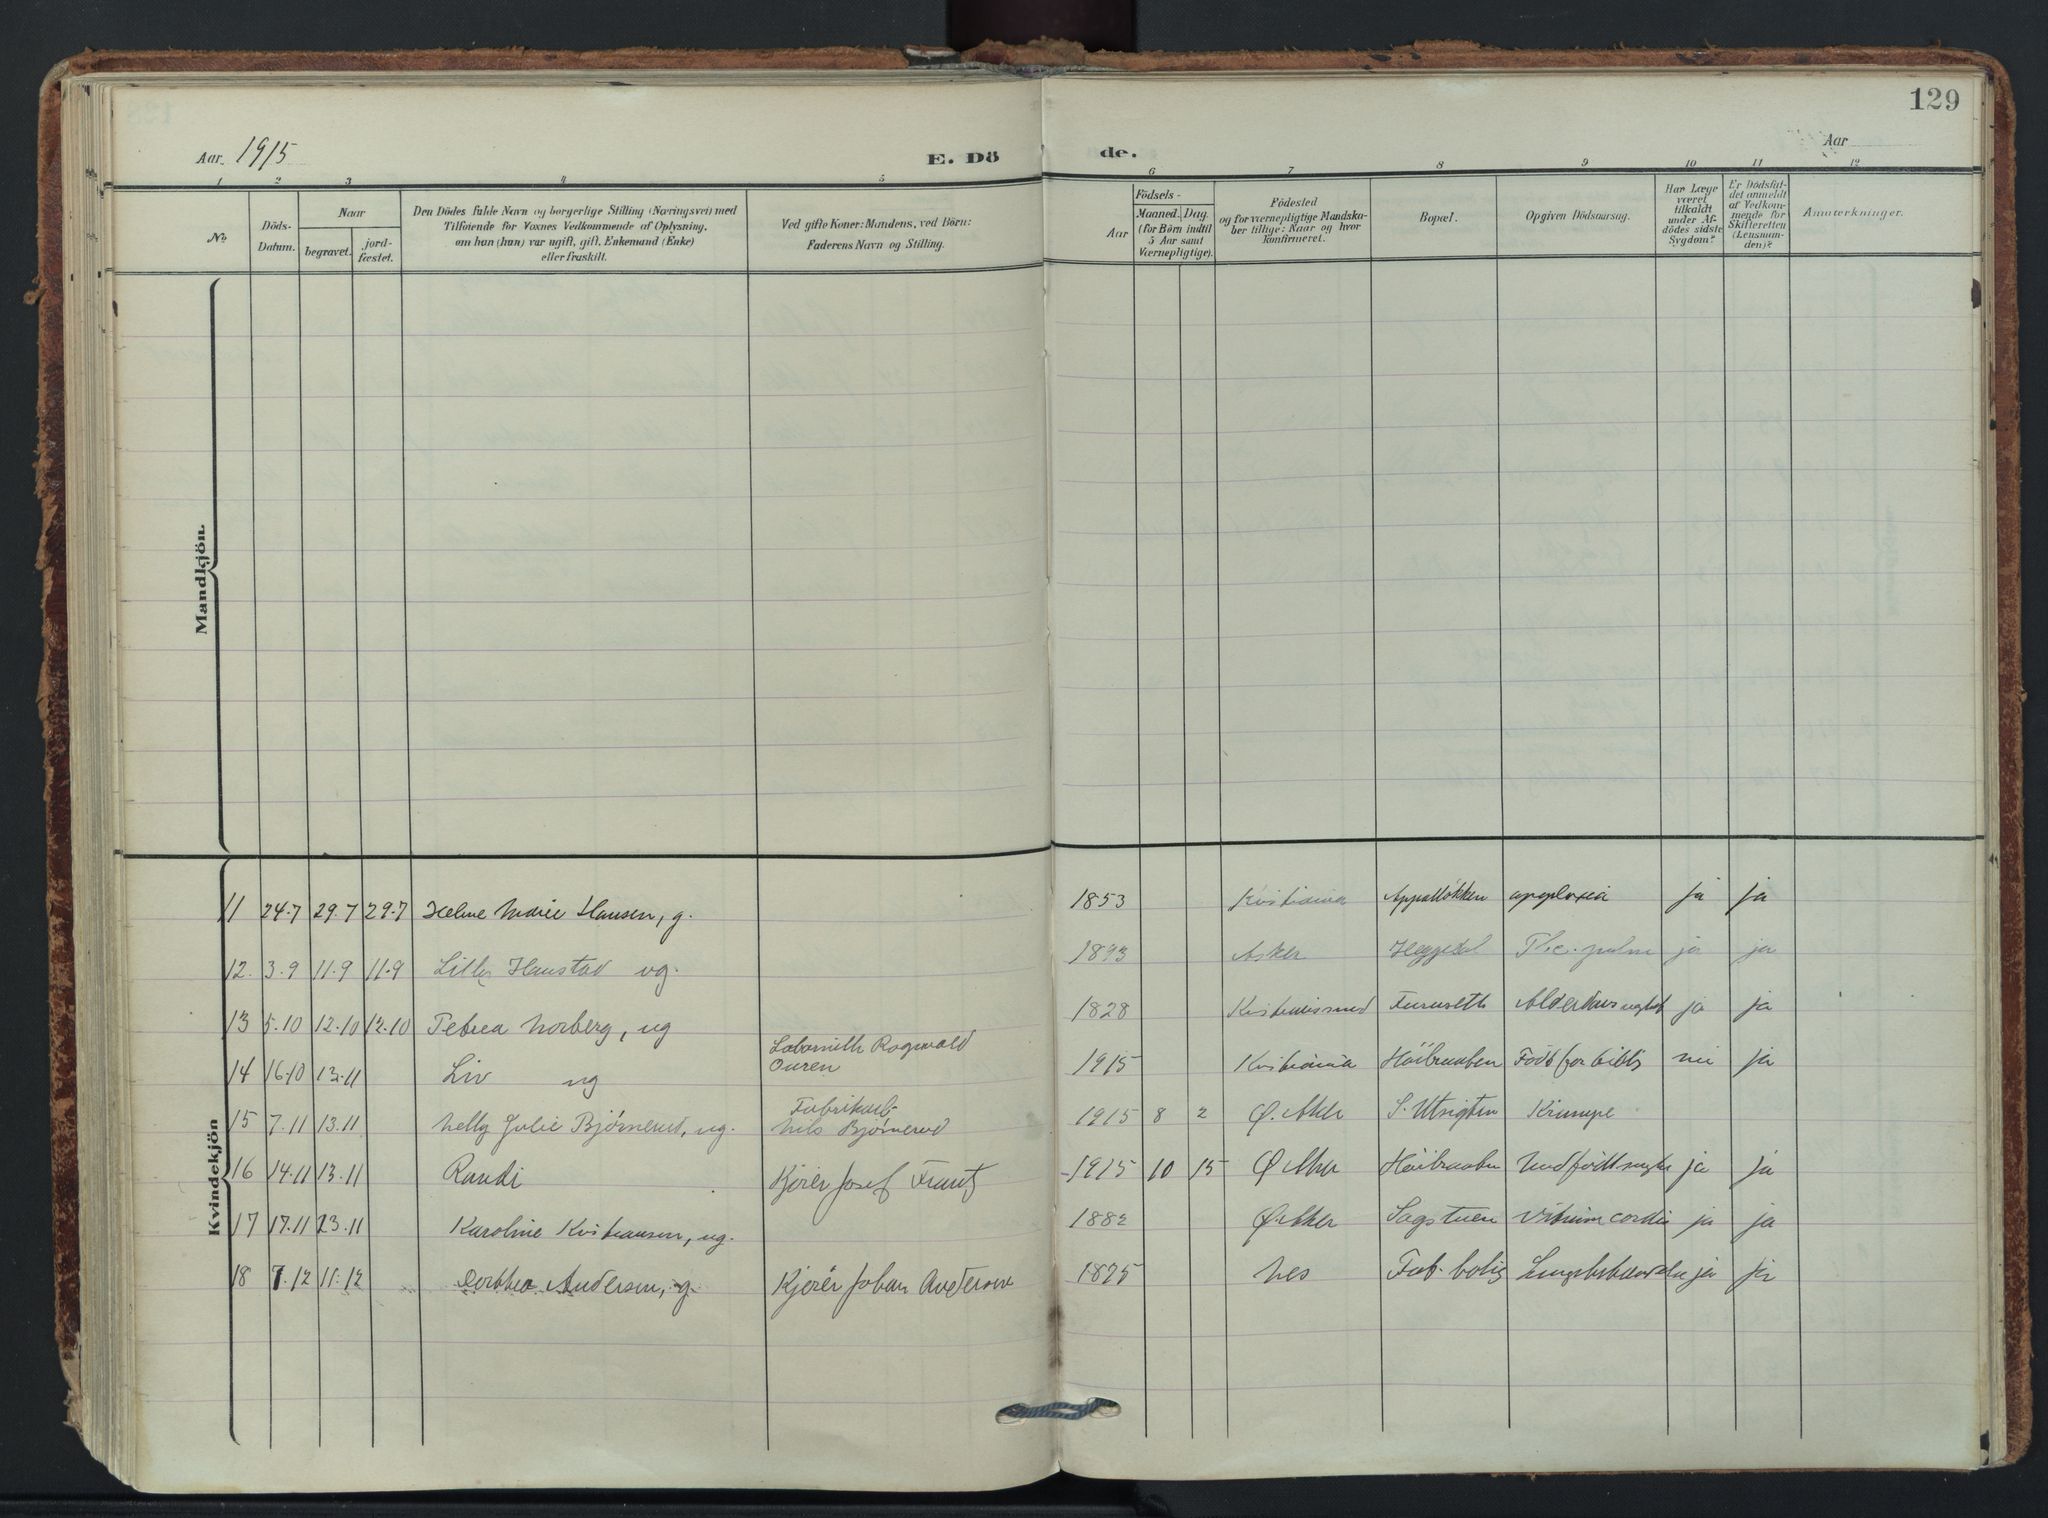 129
Aar 1915
E. Döde.
Aar
1 2 3 4 5 6 7 8 9 10 11 12
No.
Döds-Datum.
Naar
begravet.
jord-fæstet.
Den Dödes fulde Navn og borgerlige Stilling (Næringsvei) med
Tilföiende for Voxnes Vedkommende af Oplysning,
om han (hun) var ugift, gift, Enkemand (Enke)
eller fraskilt.
Ved gifte Koner: Mandens, ved Börn:
Faderens Navn og Stilling.
Födsels-
Aar
Maaned. Dag.
(for Börn indtil
5 Aar samt
Værnepligtige).
Födested
og for værnepligtige Mandska-
ber tillige: Naar og hvor
konfirmeret.
Bopæl.
Opgiven Dödsaarsag.
Har Læge
været
tilkaldt
under Af-
dödes sidste
Sygdom?
Er Dödsfal-
det anmeldt
af Vedkom-
mende for
Skifteretten
(Lensman-
den)?
Anmærkninger.
Mandkjön.
Kvindekjön
11 24.7 29.7 29.7 Helene Marie Hansen, g. 1853 Kristiania apoplexia ja ja
12. 3.9 11.9 11.9 Lilly Hanstad ug. 1893 Asker Heggedal Tbc. pulm ja ja
13 5.10 12.10 12.10 Petrea Norberg, ug 1828 Kristianssund Furuseth ja ja
14 16.10 13.11 Liv ug Ragnvald
Ouren 1915 Kristiania Höibraaten Födt for tidlig nei ja
15 7.11 13.11 Nelly Julie Bjørnerud, ug. Fabrikarb.
Nils Bjørnerud 1915 8 2 Ø. Aker S. Utsigten Krampe
16 14.11 13.11 Randi Kjörer Josef Frantz 1915 10 15 Ø Aker Höibraaten ja ja
17 17.11 23.11 Karoline Kristiansen, ug. 1882 Ø. Aker Sagstuen Vitium cordis ja ja
18 7.12 11.12 Dorthea Andersen, g. Kjörer Johan Andersen 1875 Nes Fab. bolig ja ja